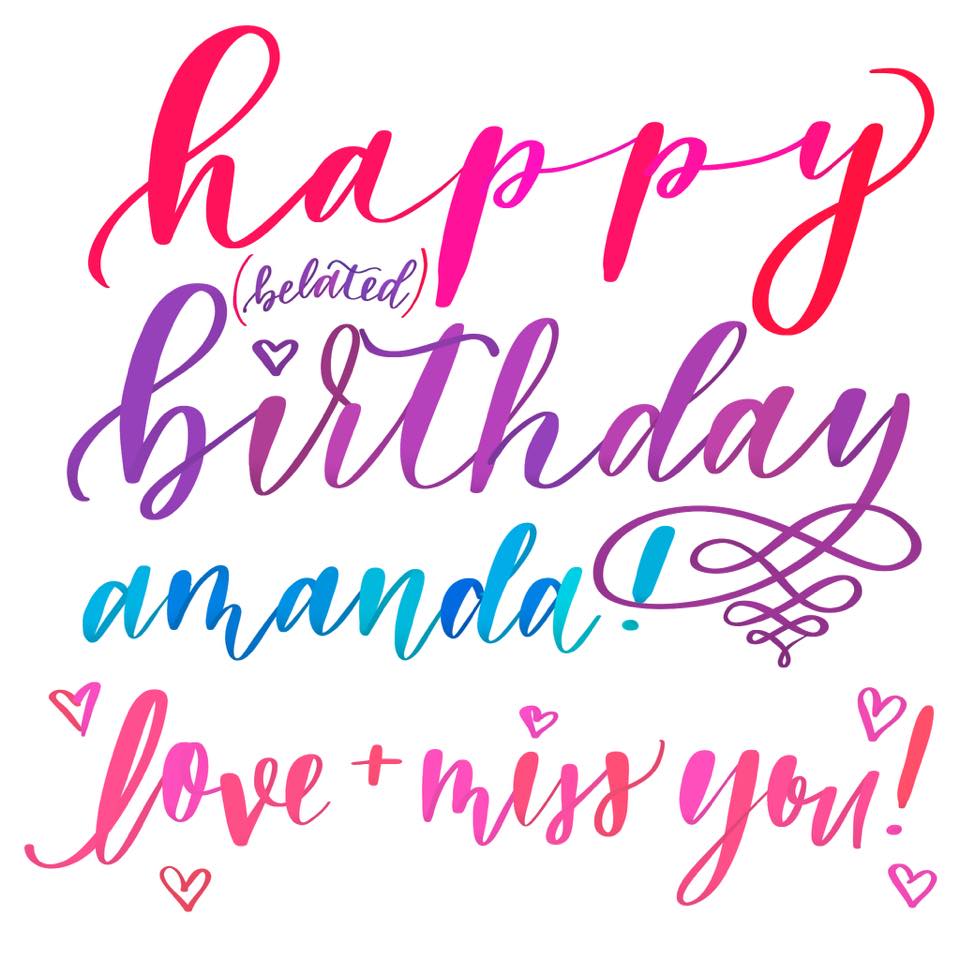 happy
(belated)
birthday
amanda!
love + miss you!